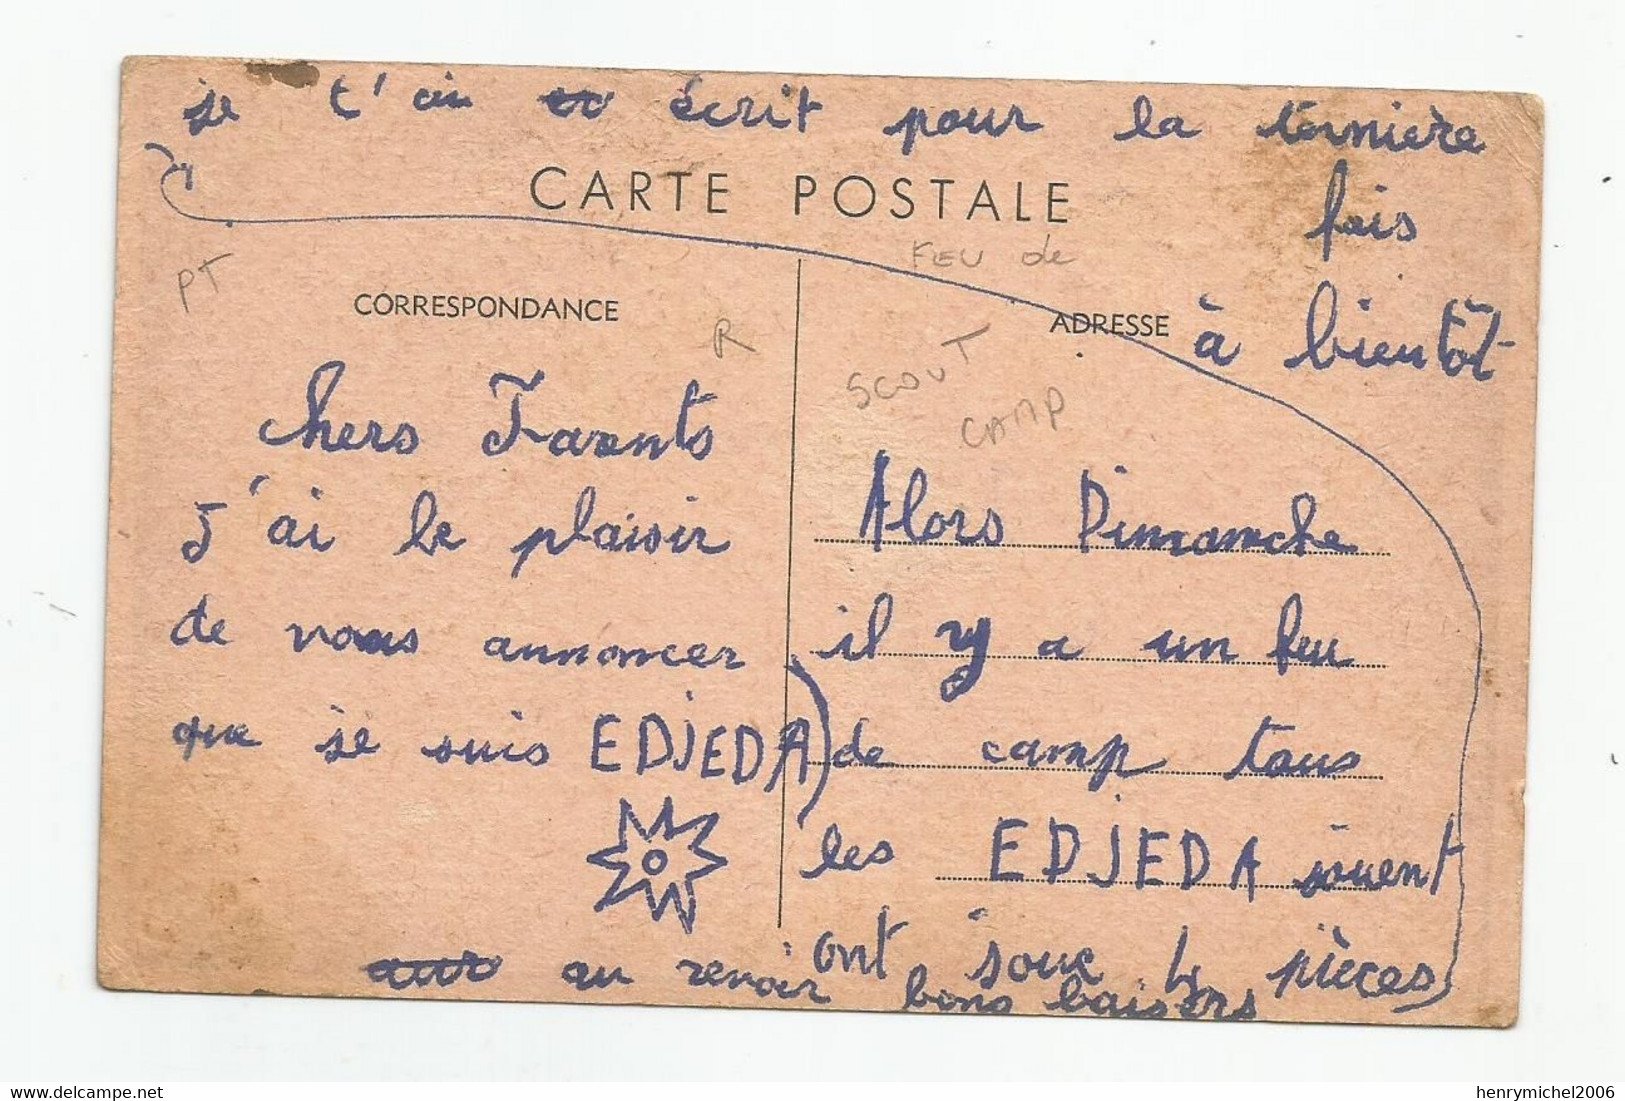 je t'ai écrit pour la ternière
fois
à bientôt
CARTE POSTALE
FEU de
PT
CORRESPONDANCE
R
ADRESSE
SCOUT
CAMP
Chers Parents
J'ai le plaisir
de vous annoncer
que je suis EDJEDA
au revoir bons baisers
Alors Dimanche
il y a un feu
de camp tous
les EDJEDA jouent
ont joue 4 pièces
delcampe.net
henrymichel2006